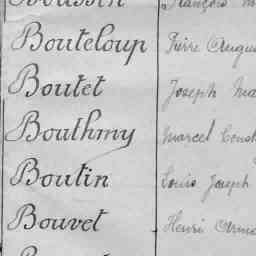 Boussin François
Bouteloup Pierre Augu
Boutet Joseph Ma
Bouthmy Marcel Const
Boutin Louis Joseph
Bouvet Henri Arma